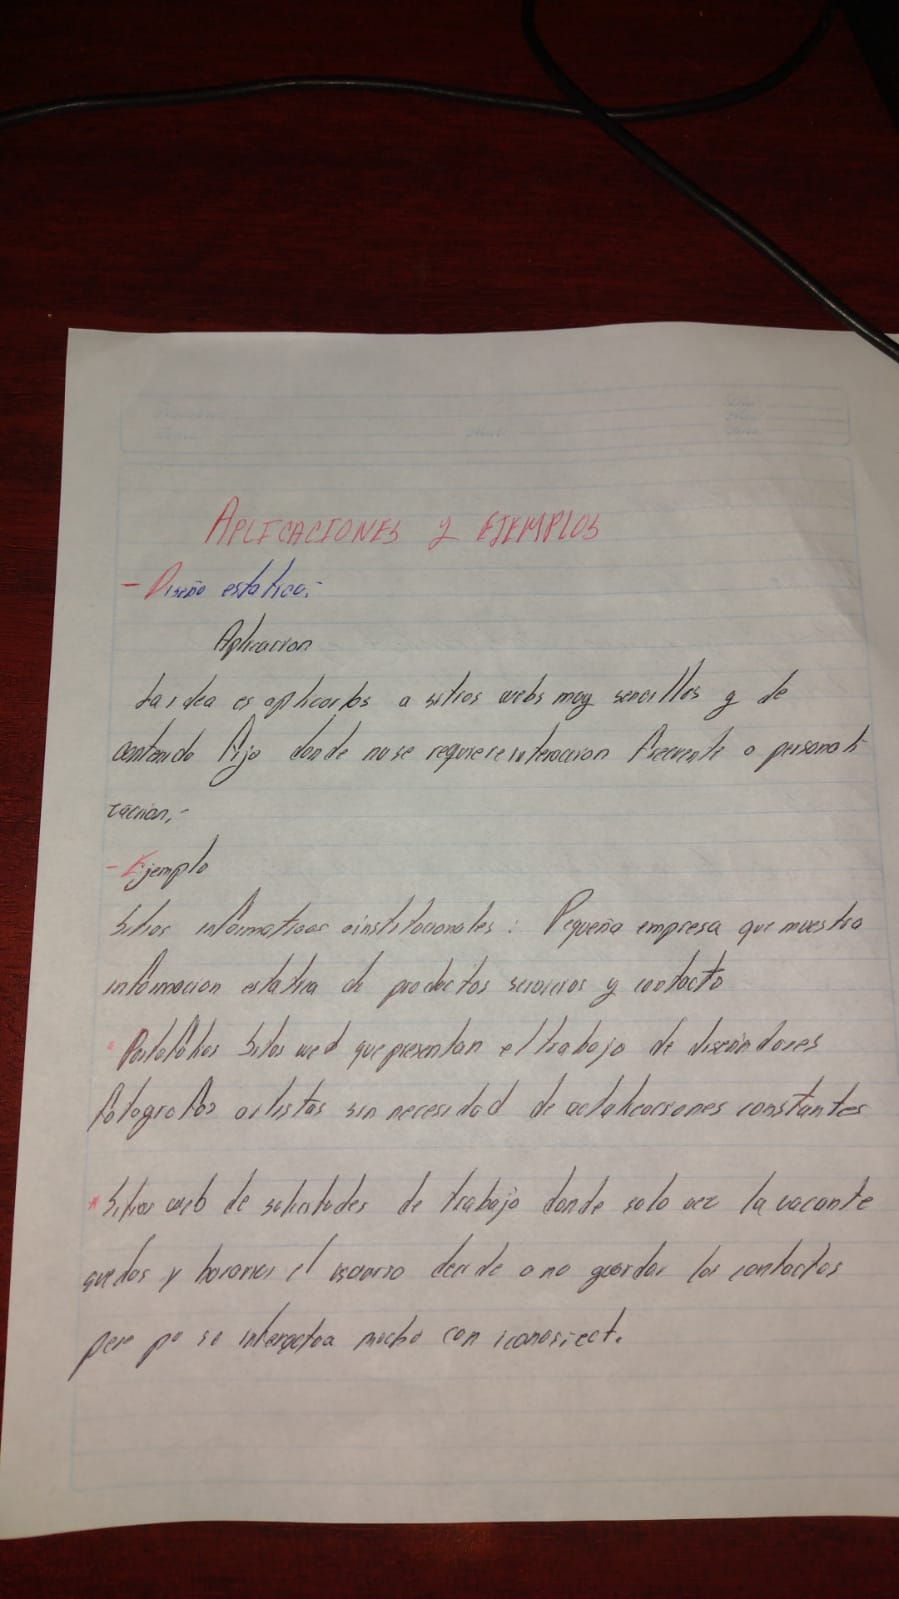 APLICACIONES Y EJEMPLOS
- Diseño estatico:-
Aplicacion
La idea es aplicarlos a sitios webs muy sencillos y de
contenido fijo donde no se requiere interaccion frecuente o personali
zacion,-
- Ejemplo
Sitios informativos o institucionales : Pequeña empresa que muestra
informacion estatica de productos servicios y contacto
Portafolios Sitios wed que presentan el trabajo de diseñadores
fotografos artistas sin necesidad de actalicaciones constantes
* Sitios web de solicitudes de trabajo donde solo vez la vacante
y horarios el usuario decide o no guardar los contactos
pero no se interactua mucho con iconos, ect.